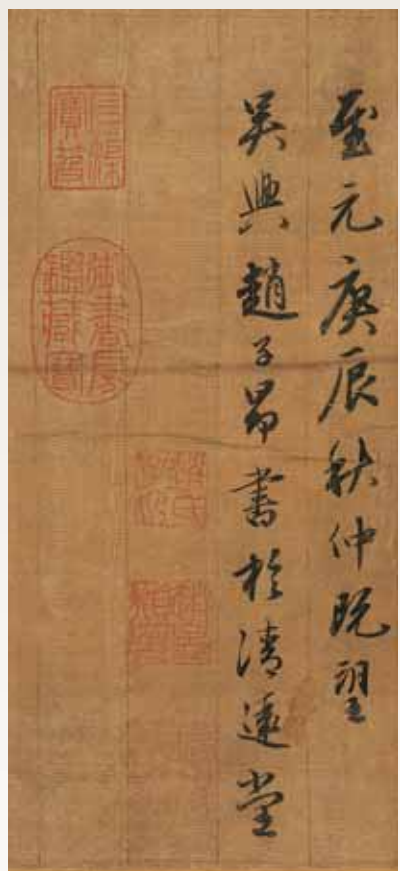 至元庚辰秋仲既望
吳興趙子昂書於清遠堂
趙氏子昂
石渠寶笈
御書房鑑藏寶